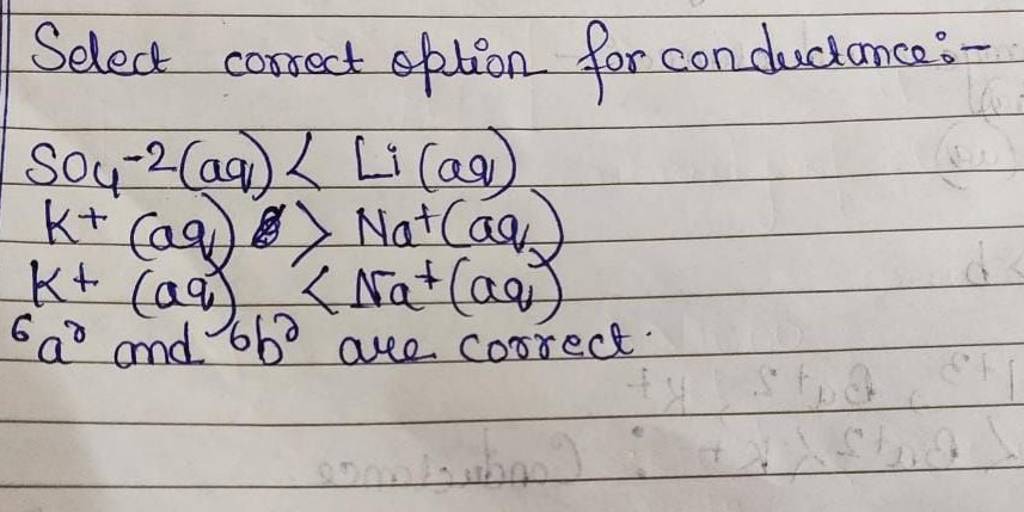 Select correct option for conductance:-
SO4-2(aq) < Li (aq)
K+ (aq) > Na+(aq)
K+ (aq) < Na+(aq)
'a' and 'b' are correct.